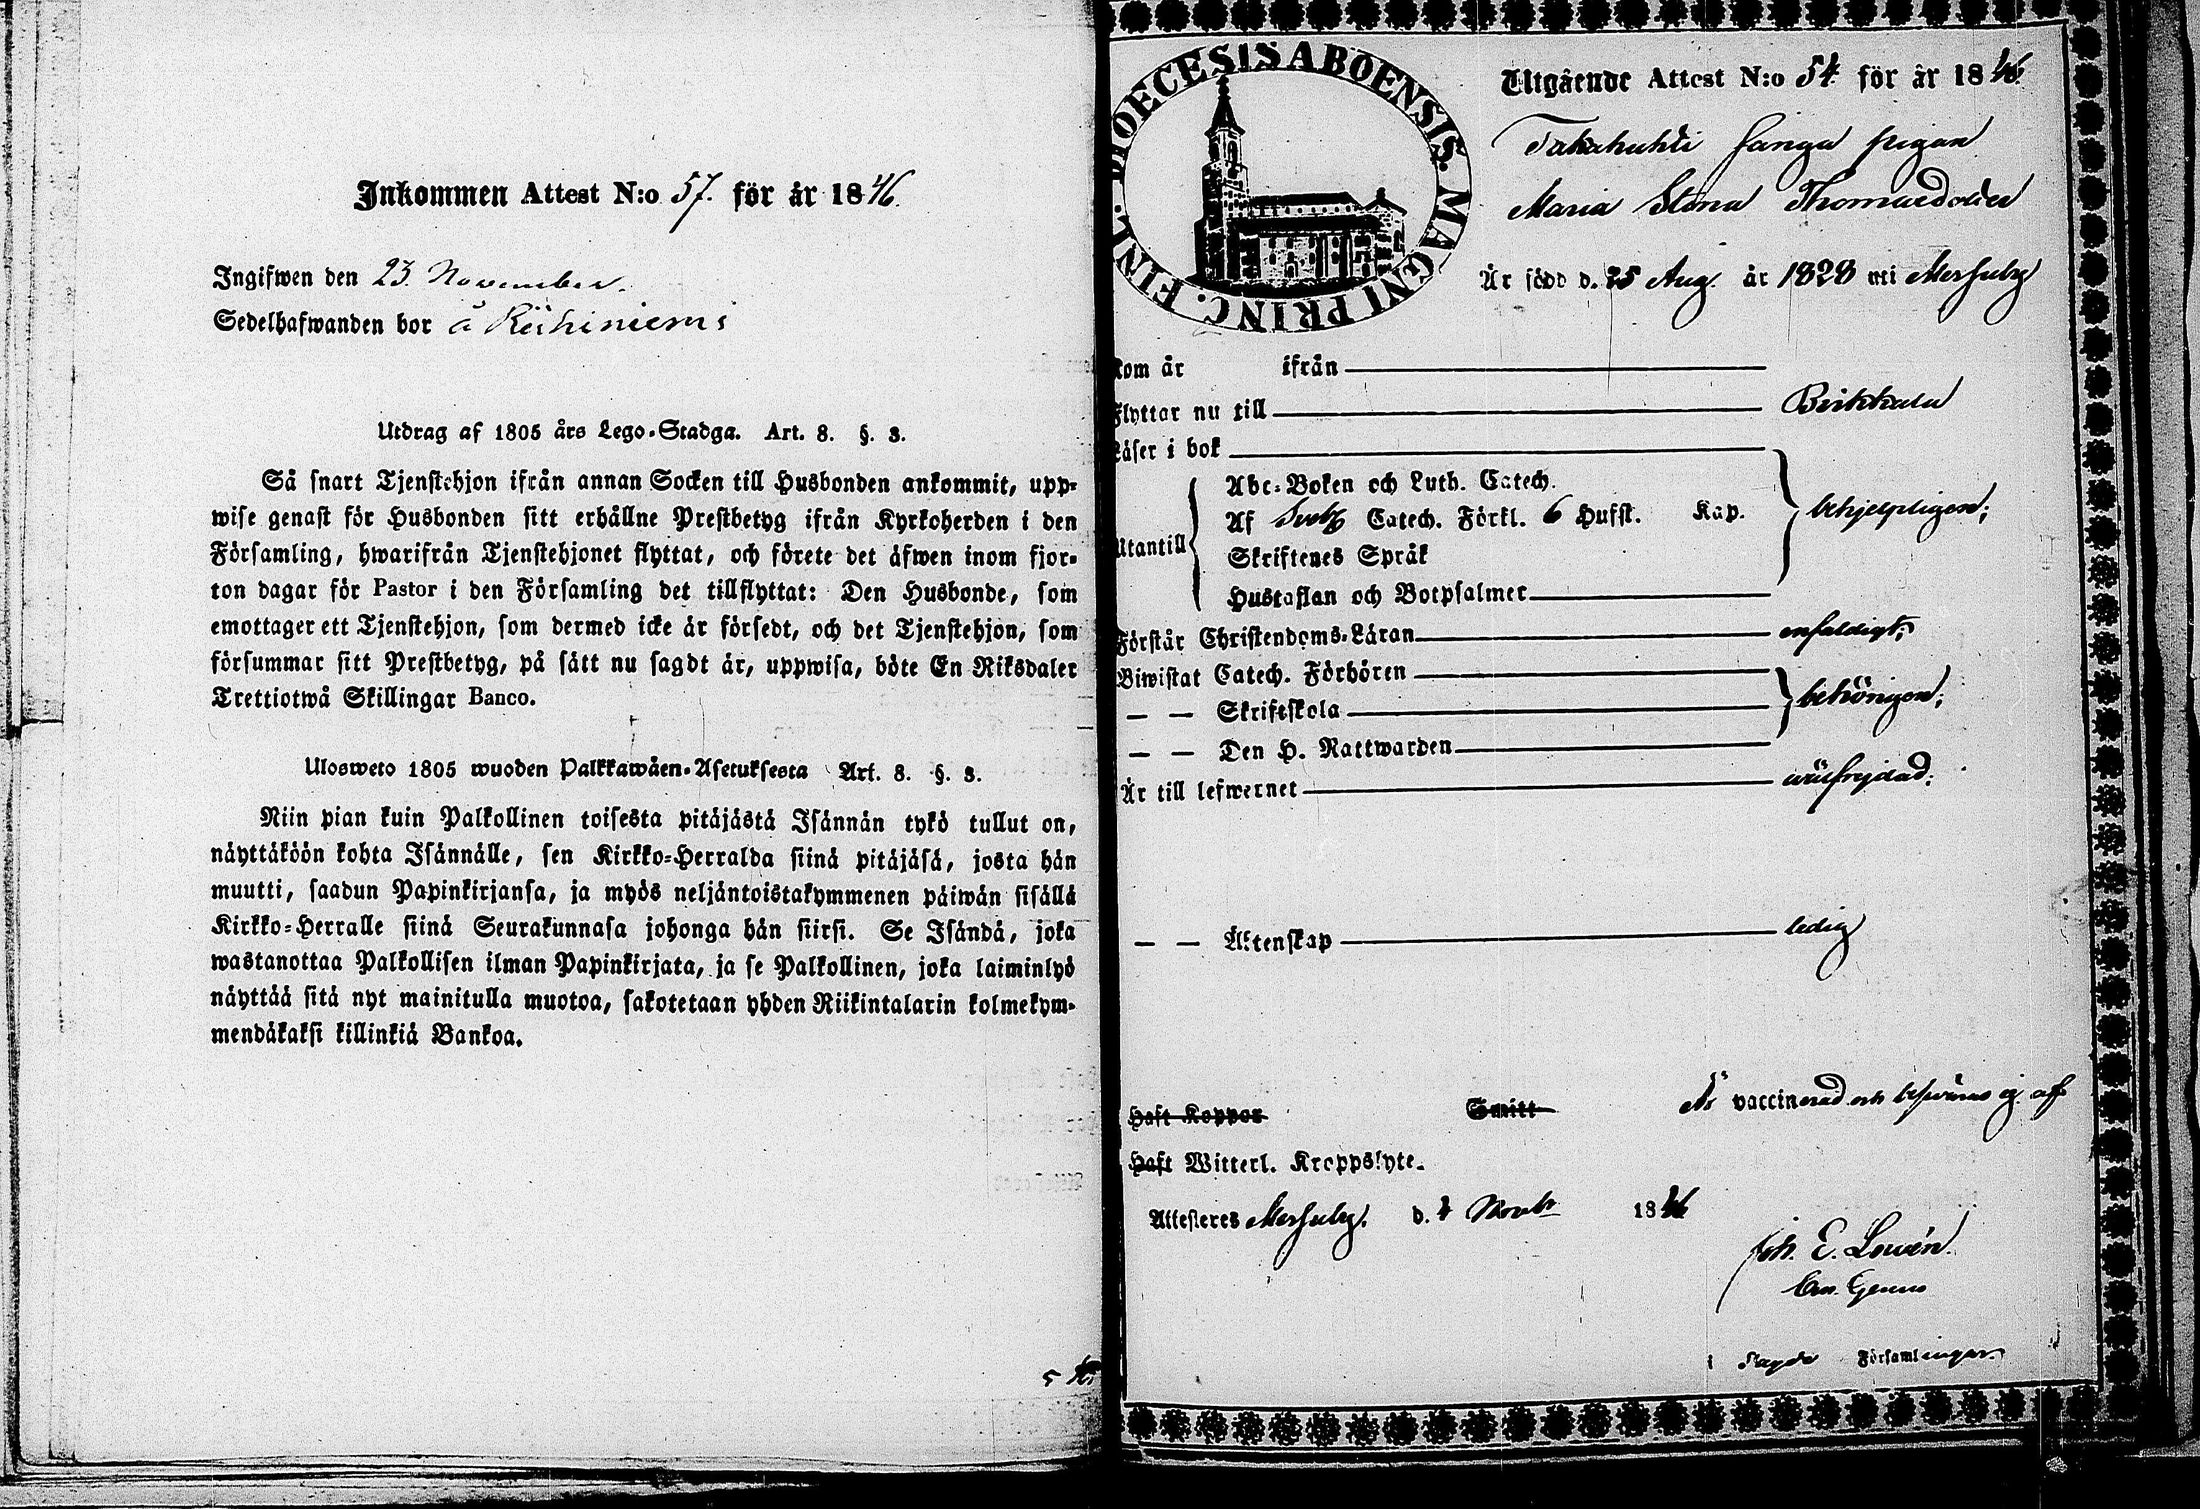 Inkommen Attest N:o 57. för år 1846.
Ingifwen den 23. November.
Sedelhafwanden bor å Riihiniemi
Utdrag af 1805 års Lego-Stadga. Art. 8. §. 3.
Så snart Tjenstehjon ifrån annan Socken till Husbonden ankommit, upp-
wise genast för Husbonden sitt erhållne Prestbetyg ifrån Kyrkoherden i den
Församling, hwarifrån Tjenstehjonet flyttat, och förete det äfwen inom fjor-
ton dagar för Pastor i den Församling det tillflyttat: Den Husbonde, som
emottager ett Tjenstehjon, som dermed icke är försedt, och det Tjenstehjon, som
försummar sitt Prestbetyg, på sätt nu sagdt är, uppwisa, böte En Riksdaler
Trettiotwå Skillingar Banco.
Ulosweto 1805 wuoden Palkkawäen-Asetuksesta Art. 8. §. 3.
Niin pian kuin Palkollinen toisesta pitäjästä Isännän tykö tullut on,
näyttäköön kohta Isännälle, sen Kirkko-Herralda siinä pitäjäsä, josta hän
muutti, saadun Papinkirjansa, ja myös neljäntoistakymmenen päiwän sisällä
Kirkko-Herralle siinä Seurakunnasa johonga hän siirsi. Se Isändä, joka
wastanottaa Palkollisen ilman Papinkirjata, ja se Palkollinen, joka laiminlyö
näyttää sitä nyt mainitulla muotoa, sakotetaan yhden Riikintalarin kolmekym-
mendäkaksi killinkiä Bankoa.
DIOECESIS ABOENSIS. MAGNI PRINC. FINL.
Utgående Attest N:o 54 för år 1846.
Takahuhti pigan
Maria Stina Thomædotter
Är född d. 25 Aug. år 1828 uti Messuby
Kom år ifrån
Flyttar nu till Birkkala
Läser i bok
Abc-Boken och Luth. Catech.
Af Sveb. Catech. Förkl. 6 Hufst. Kap. behjelpligen;
Utantill
Skriftenes Språk
Hustaflan och Botpsalmer
Förstår Christendoms-Läran enfaldigt;
Biwistat Catech. Förhören
— — Skriftskola behörigen;
— — Den H. Nattwarden
Är till lefwernet wälfrejdad;
— — Äktenskap ledig
Haft Koppor Smitt Är vaccinerad och besväras ej af
Haft Witterl. Kroppslyte.
Attesteras Messuby. d. 4 Novbr 1846
Joh. E. Lovén.
i Församlingar.